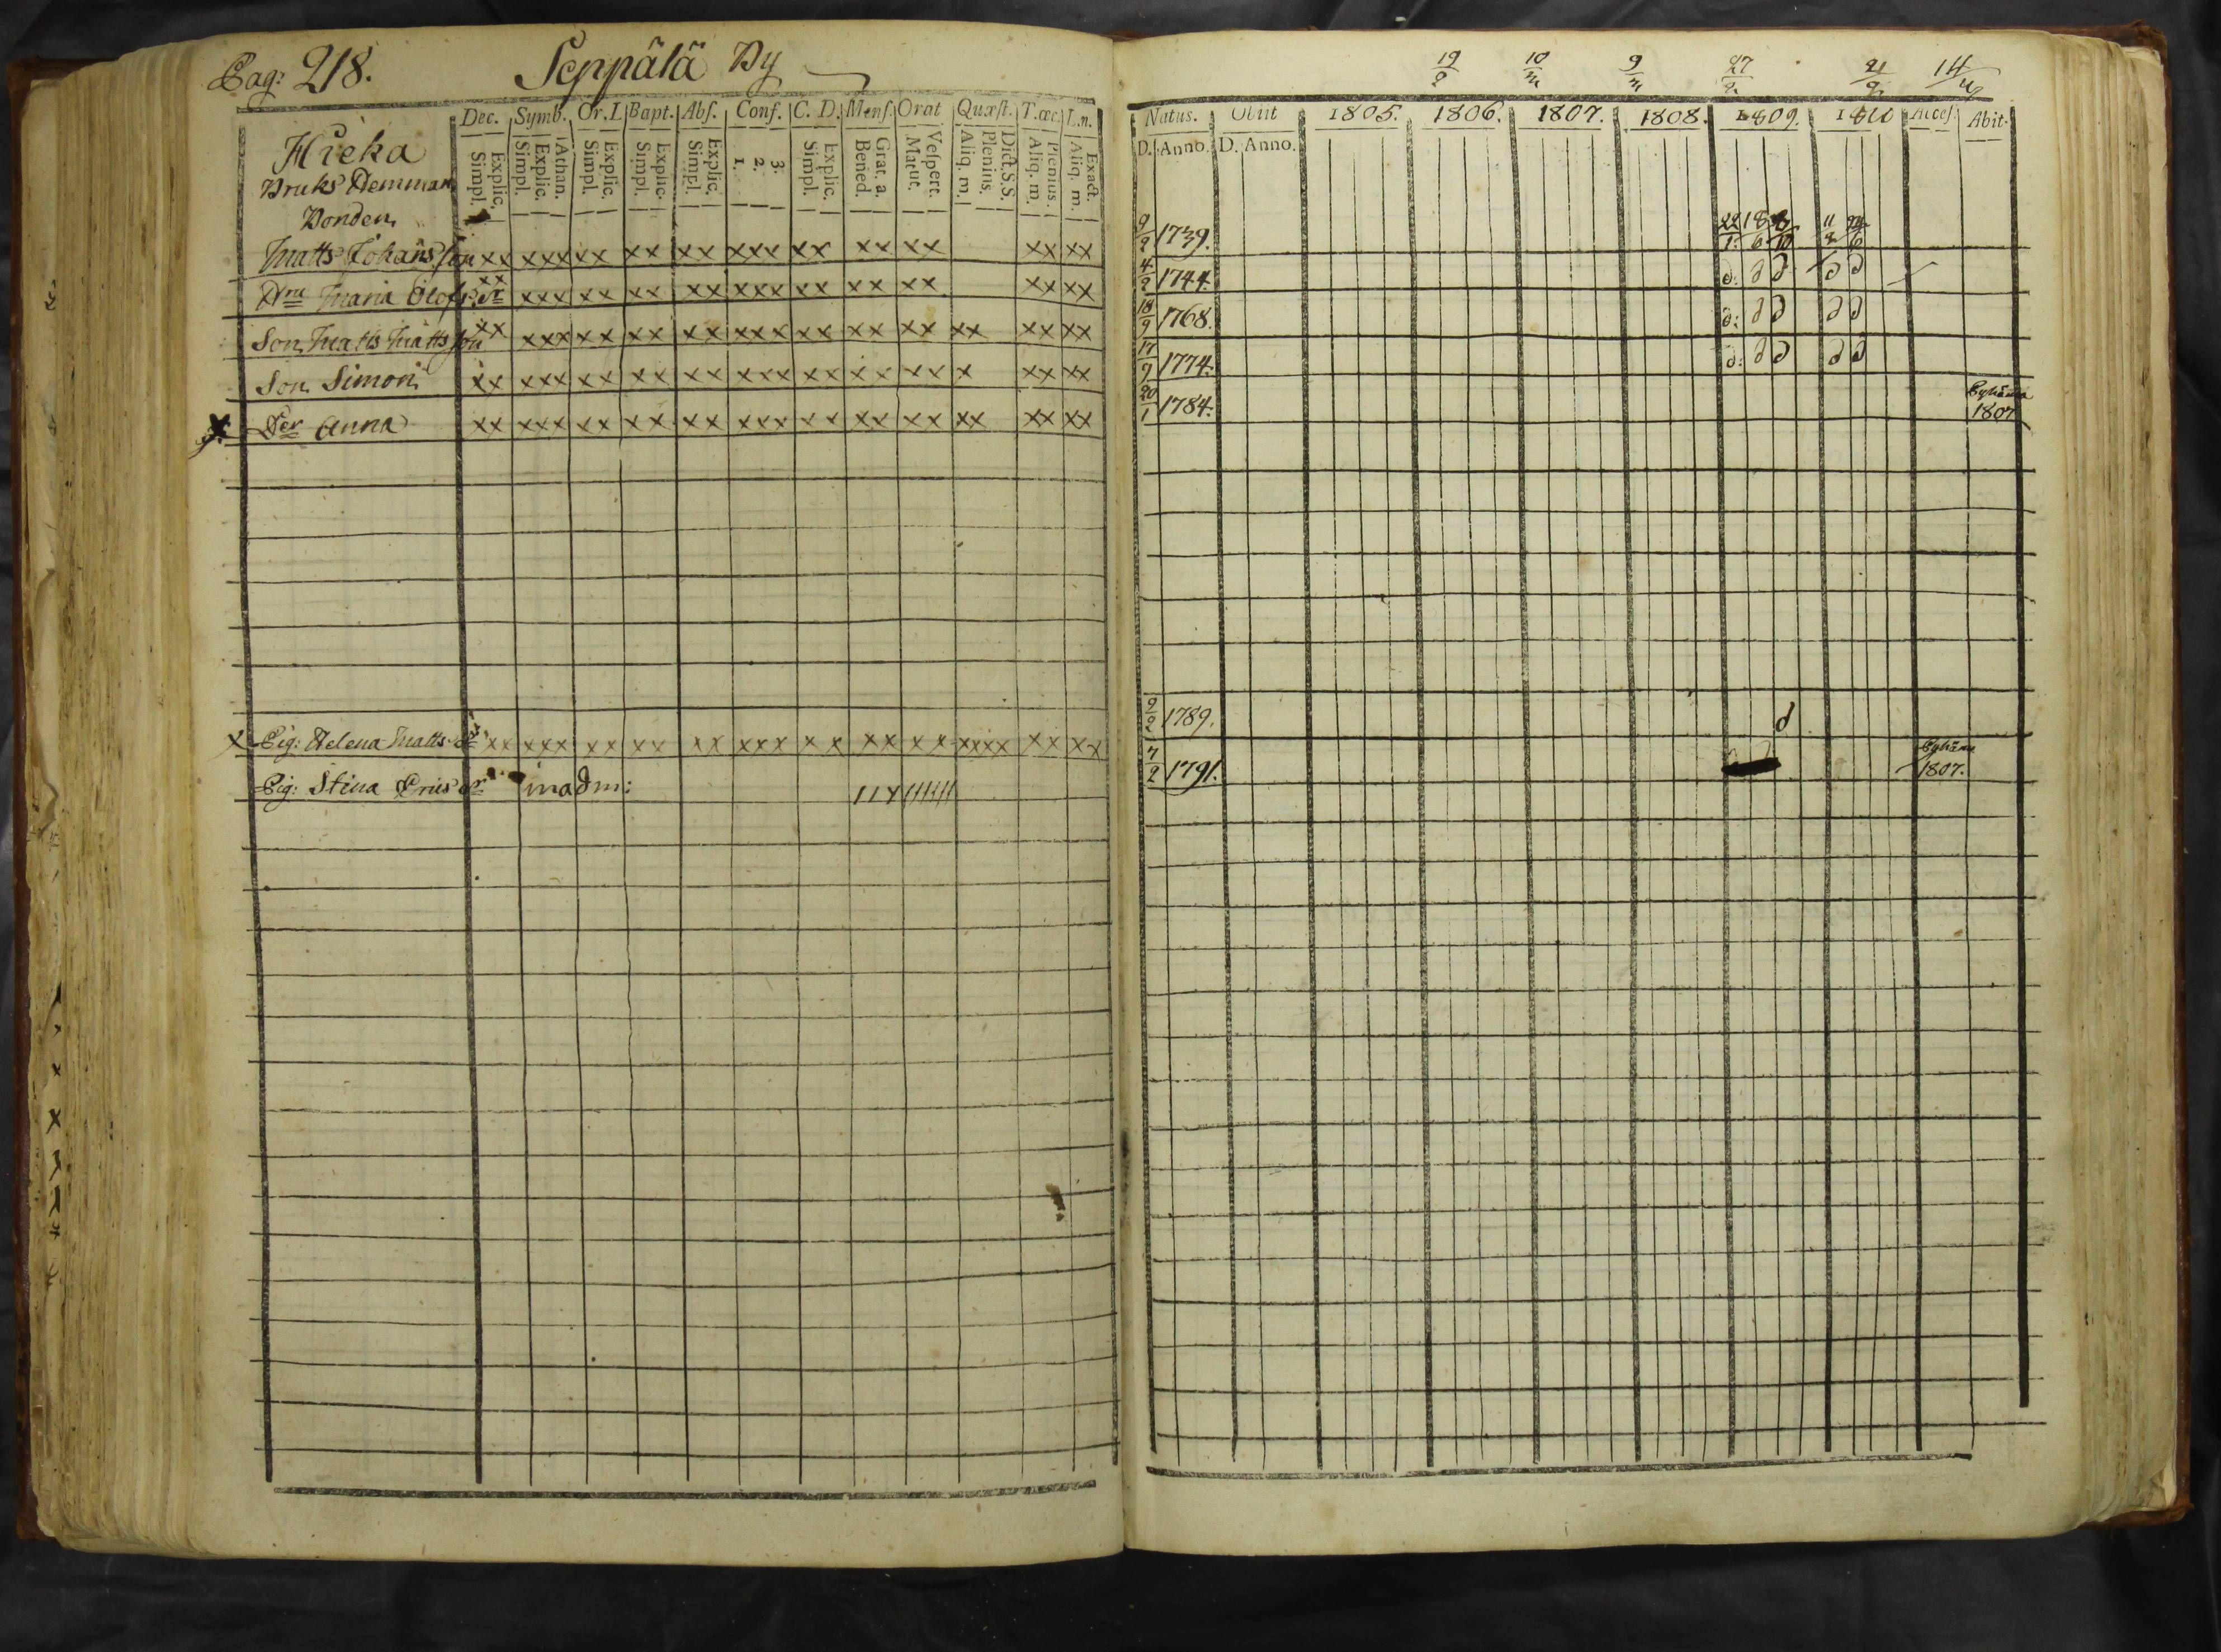 Pag: 218. Seppälä By
Dec. Symb. Or. L Bapt. Abſ. Conf. C. D. Menſ. Orat Quæſt. T. œc. L.n.
Explic. Simpl. Athan. Explic. Simpl. Explic. Simpl. Explic. Simpl. Explic. Simpl. 3. 2. 1. Explic. Simpl. Grat. a. Bened. Veſpert. Matut. Dict. S.S. Plenius. Aliq. m. Plenius. Aliq. m. Exact. Aliq. m.
Hieka
Bruks Hemman
Bonden
Matts Johansson xx xxx xx xx xx xxx xx xx xx xx xx
Hru Maria Olofsdr xx xxx xx xx xx xxx xx xx xx xx xx
Son Matts Mattsson xx xxx xx xx xx xxx xx xx xx xx xx xx
Son Simon xx xxx xx xx xx xxx xx xx xx x xx xx
x Der Anna xx xxx xx xx xx xxx xx xx xx xx xx xx
x Pig: Helena Matts dr xx xxx xx xx xx xxx xx xx xx xxxx xx xx
Pig: Stina Eriks dr inadm:
19/2 10/m 9/m 27/2 21/2 14/
Natus. Obiit 1805. 1806. 1807. 1808. 1809. 1810 Acceſ. Abit.
D. Anno. D. Anno.
9/2 1739. 22/1 18/6 11/2
4/2 1744. d: d d d d
18/9 1768. d: d d d d
17/7 1774. d: d d d d
20/1 1784. 1807
2/2 1789. d
7/2 1791. 1807.